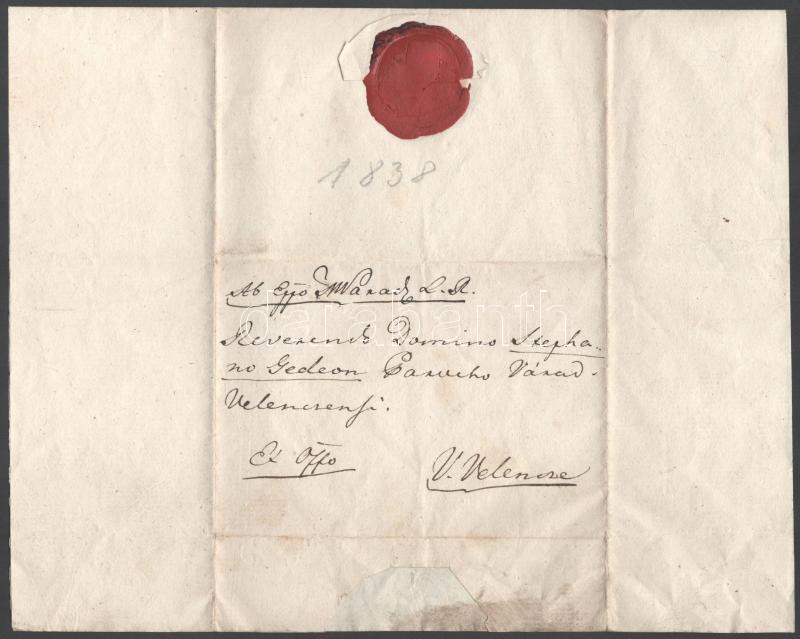 1838
Ab Eppo MVaradi L. R.
Reverendo Domino Stepha..
no Gedeon Parocho Várad-
Velenczensi.
Ex Offo
V. Velencze
darabanth